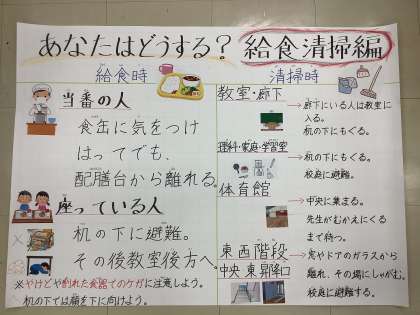 あなたはどうする？ 給食清掃編
給食時
当番の人
食缶に気をつけ
はってでも、
配膳台から離れる。
座っている人
机の下に避難。
その後教室後方へ。
※やけどや割れた食器でのケガに注意しよう。
机の下では顔を下に向けよう。
清掃時
教室・廊下
→廊下にいる人は教室に
入る。
机の下にもぐる。
理科・家庭・学習室
→机の下にもぐる。
校庭に避難。
体育館
→中央に集まる。
先生がむかえにくる
まで待つ。
東西階段
中央 東昇降口
→窓やドアのガラスから
離れ、その場にしゃがむ。
校庭に避難する。